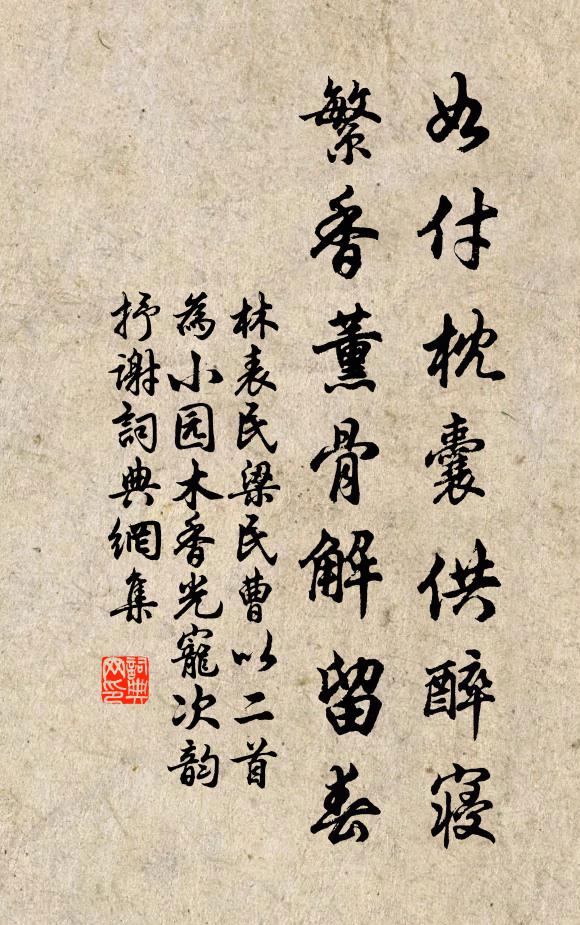 如付枕囊供醉寝
繁香薰骨解留春
林表民梁民曹以二首
為小园木香光寵次韵
抒谢詞典網集
詞典网印